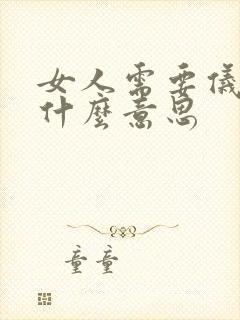 女人需要儀
什麼意思
童童